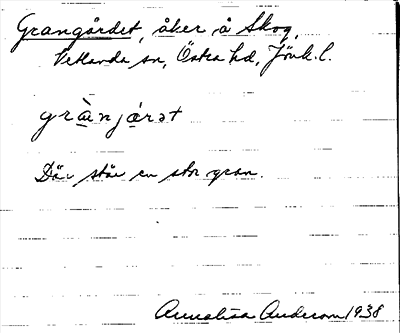 Grangårdet, åker å Skog,
Vetlanda sn, Östra hd, Jönk. l.
grànjárət
Där står en stor gran.
Annalisa Anderson 1938